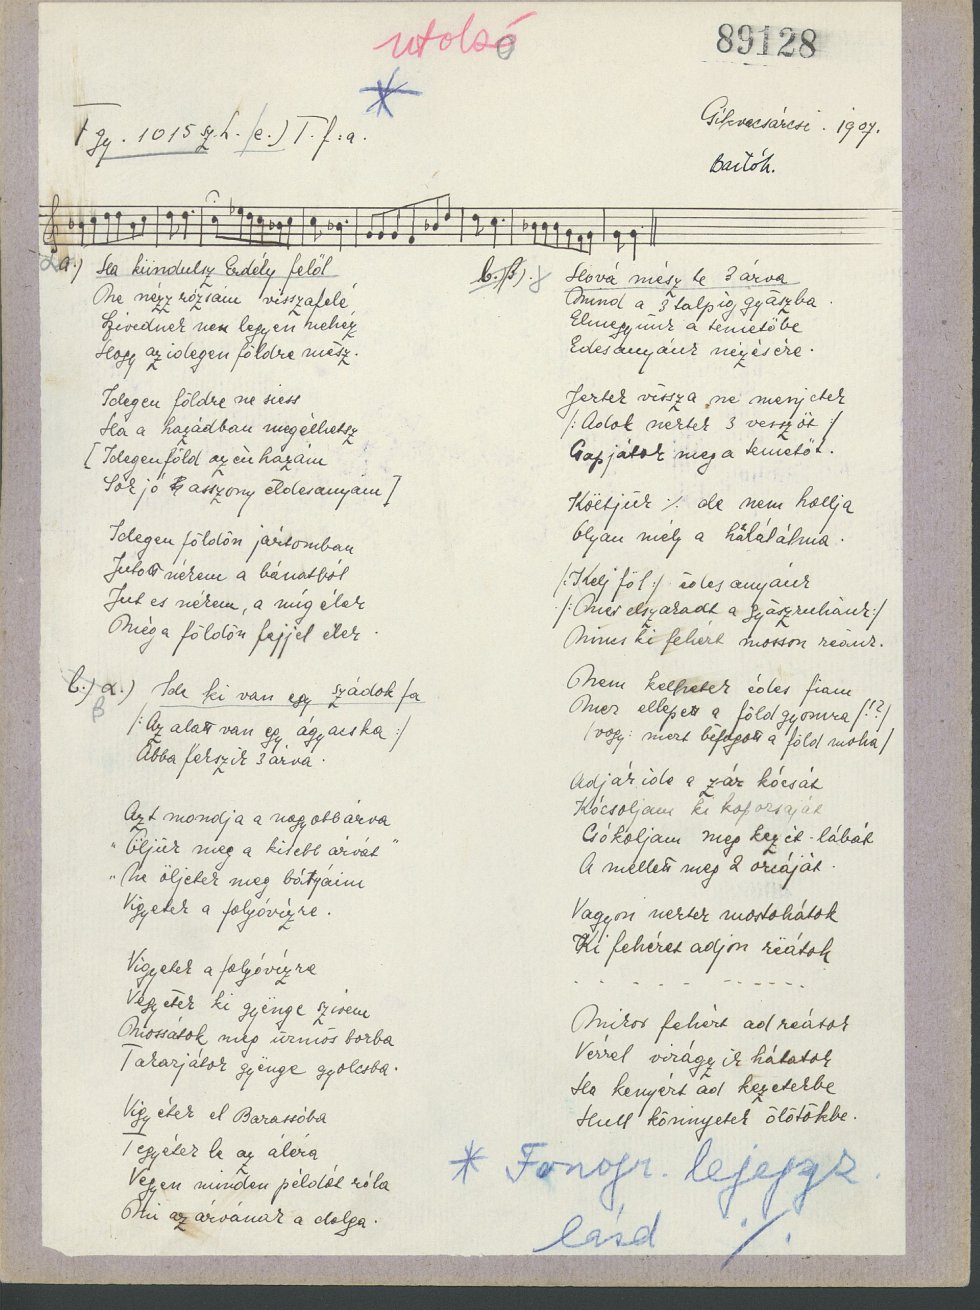 utolsó
89128
*
T gy. 1015 sz. L. (e.) T. f: a.
Gíkvecsárcsi. 1907.
Bartók.
a.) Ha kiindulsz Erdély felől
Ne nézz rózsám visszafelé
Szivednek nem legyen nehéz
Hogy az idegen földre mész.
Idegen földre ne siess
Ha a hazádban megélhetsz
[Idegenföld az én hazám
Sok jó asszony édesanyám]
Idegen földön jártomban
Jutott nékem a bánatból
Jut es nékem, a míg élek
Míg a földön fejjel élek.
b.) α.) β Ide ki van egy szádok fa
/: Az alatt van egy ágyacska :/
Abba fekszik 3 árva.
Azt mondja a nagyobb árva
"Öljük meg a kisebb árvát"
"Ne öljetek meg bátyáim
Vigyetek a folyóvizre.
Vigyetek a folyóvizre
Vegyétek ki gyënge szivem
Mossátok meg ürmös borba
Takarjátok gyënge gyolcsba.
Vigyétek el Barassóba
Tegyétek le az
Vegyen minden példát róla
Mi az árvának a dolga.
b. β). γ Hová mész te 3 árva
Mind a 3 talpig gyászba.
Elmegyünk a temetőbe
Édesanyánk nézésére.
Jertek vissza ne menjetek
/: Adok nektek 3 vesszőt :/
Csapjátok meg a temetőt.
Költjük ·/· de nem hallja
Olyan mély a halálálma.
/: Kelj föl :/ édesanyánk
/: Mer elszakadt a gyászruhánk :/
Nincs ki fehért mosson reánk.
Nem kelhetek édes fiam
Mer ellepett a föld gyomra /!?/
/vagy: mert béfogott a föld moha/
Adják ide a zár kócsát
Kócsoljam ki koporsaját
Csókoljam meg kezét-lábát
A mellett meg 2 orcáját.
Vagyon nektek mostohátok
Ki fehéret adjon réátok
- - - - - - - - -
Mikor fehért ad reátok
Vérrel virágzik hátatok
Ha kenyért ad kezetekbe
Hull könnyetek ölötökbe.
* Fonogr. lejegyz.
lásd ·/·